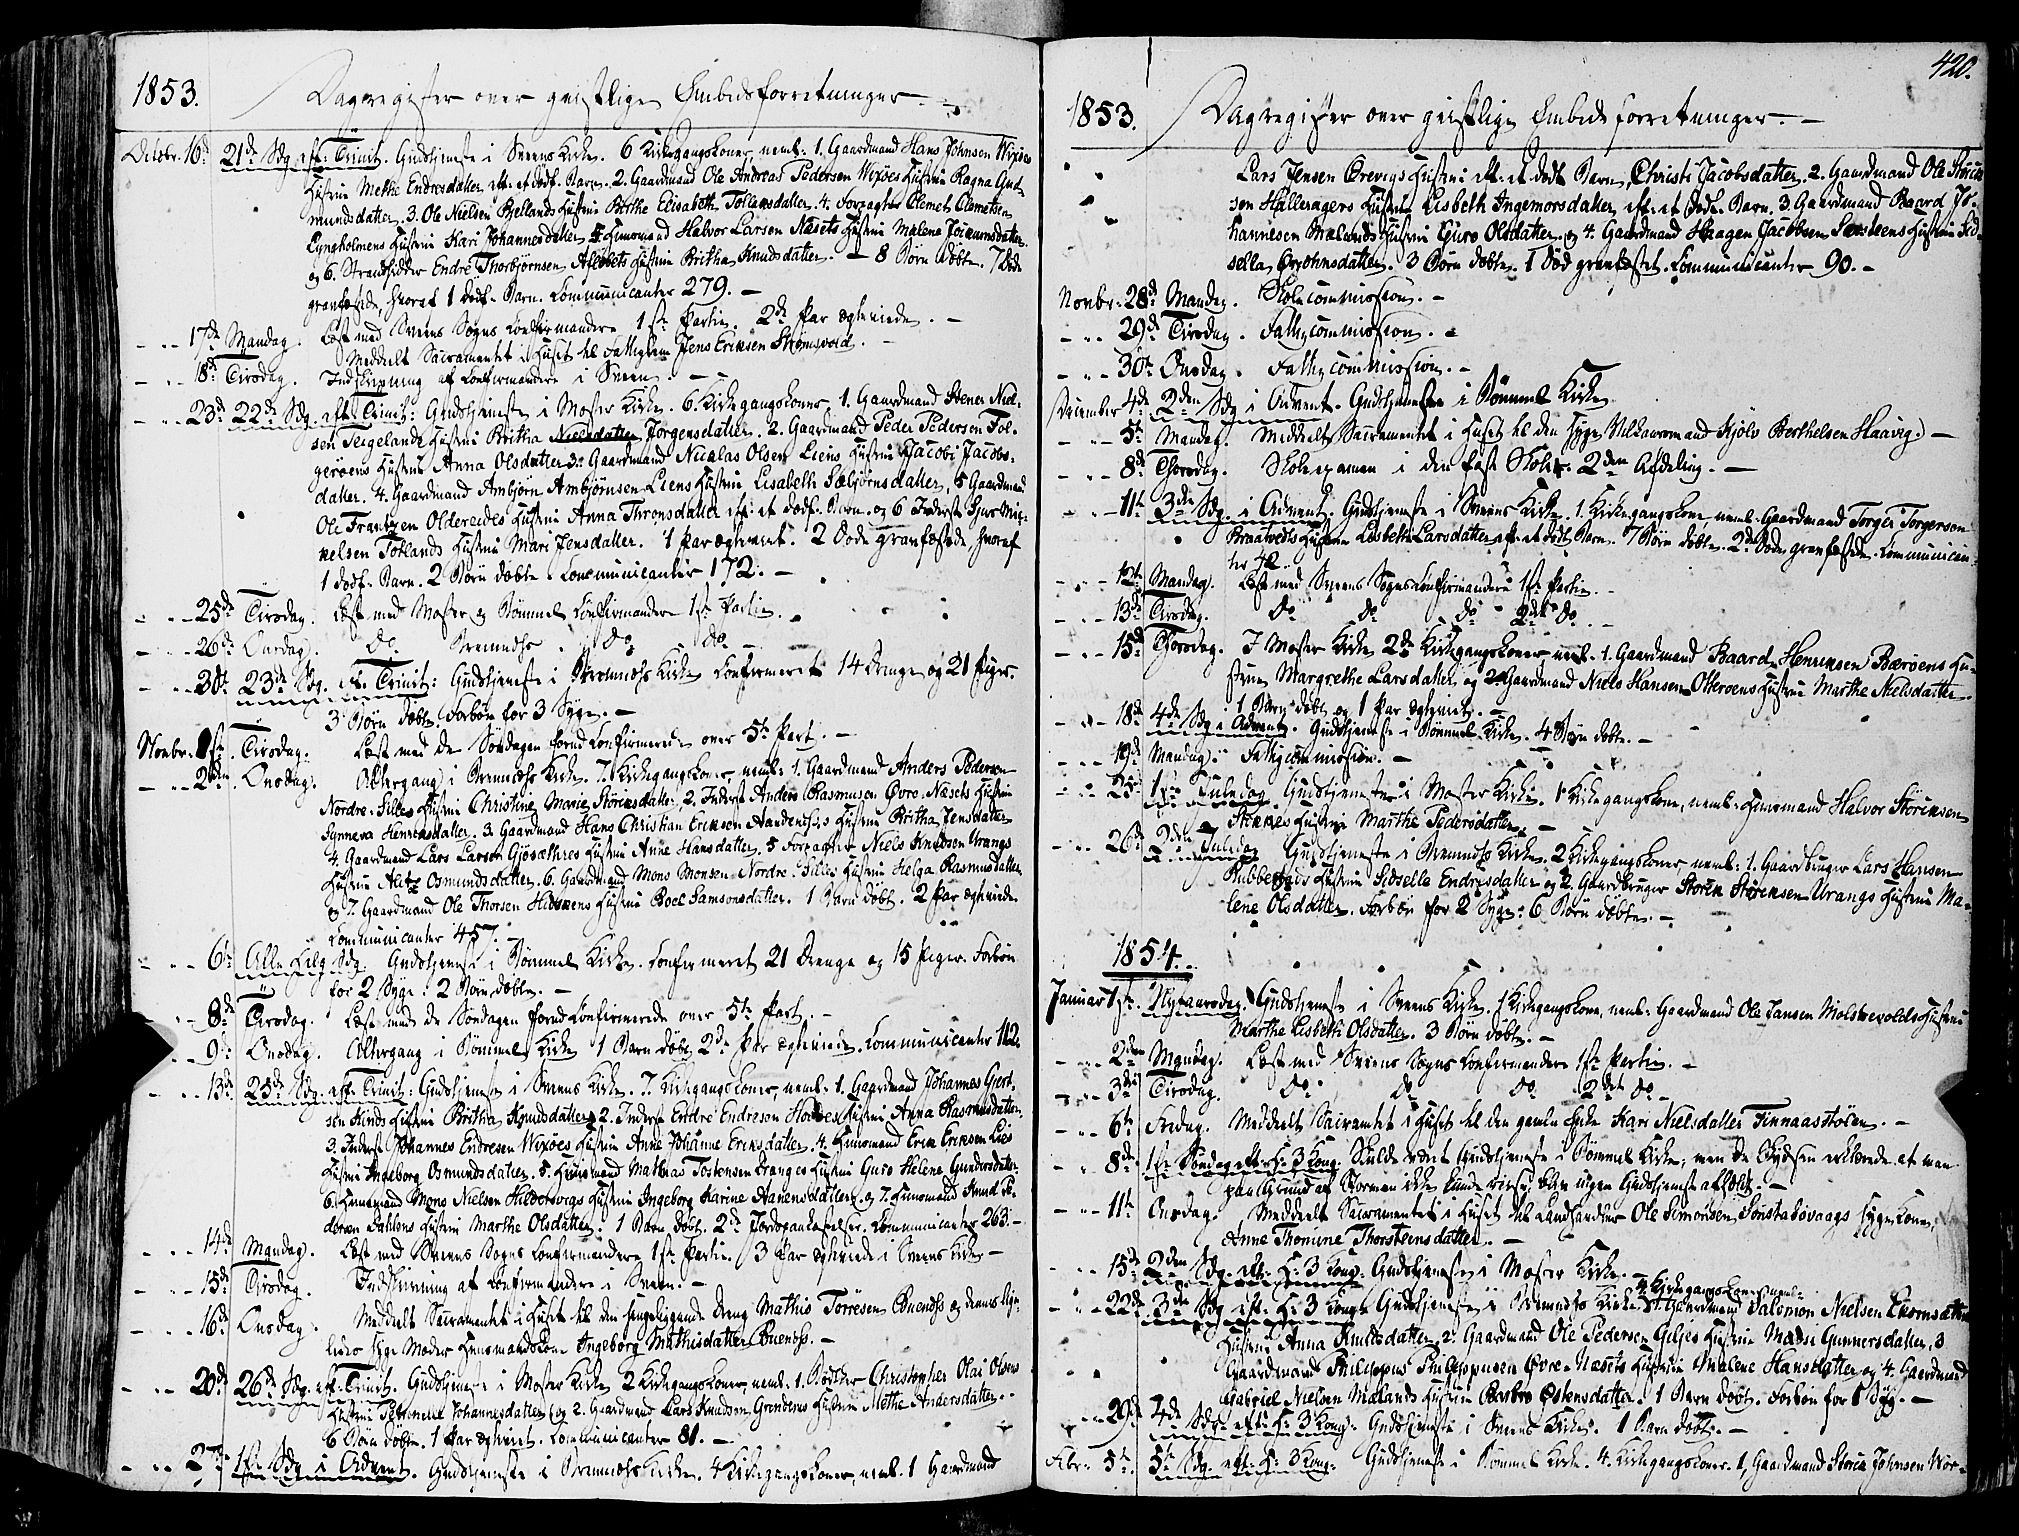 1853. Dagregister over geistlige Embedsforretninger. —
Octobr. 16de 21de Sdg. eft: Trinit. Gudstjeneste i Sveens Kirke. 6 Kirkegangskoner, neml: 1. Gaardmand Hans Johnsen Wixøes
Hustru Methe Endresdatter eft: et dødf. Barn. 2. Gaardmand Ole Andreas Pedersen Wixøes Hustru Ragna Gut-
mundsdatter. 3. Ole Nielsen Bjellands Hustru Birthe Elisabeth Tollevsdatter. 4. Forpagter Clemet Clemetsen
Lyngholmens Hustru Kari Johannesdatter. 5. Huusmand Halvor Larsen Næsets Hustru Malena Joicumsdatter
og 6. Strandsidder Endre Thorbjørnsen Hustru Britha Knudsdatter. — 8 Børn døbte. 7 Døde
gravfæstede, hvoraf 1 dødf. Barn. Communicanter 279. —
— 17de Mandag. Læst med Sveens Sogns Confirmander 1ste Partie. 2de Par ægteviede. —
Meddelt Sacramentet i Huset til Fattiglem Jens Eriksen Strømsvold. —
— 18de Tirsdag. Indskrivning af Confirmandere i Sveen. —
— 23de 22de Sdg. eft: Trinit: Gudstjeneste i Moster Kirke. 6 Kirkegangskoner 1. Gaardmand Stener Niel-
sen Teigelands Hustru Britha Nielsdatter Jørgensdatter. 2. Gaardmand Peder Pedersen Fol-
gerøens Hustru Anna Olsdatter 3. Gaardmand Nicolas Olsen Liens Hustru Jacobi Jacobs-
datter. 4. Gaardmand Ambjørn Ambjørnsen Liens Hustru Lisabeth Sæbjørnsdatter, 5 Gaardmand
Ole Frantzen Oldereides Hustru Anna Thronsdatter eft: et dødf. Barn. og 6 Inderst Sjur Mic-
kelsen Totlands Hustru Mari Jensdatter. 1 Par ægteviet. 2 Døde gravfæstede hvoraf
1 dødf. Barn. 2 Børn døbte. Communicanter 172. —
— 25de Tirsdag. Læst med Moster og Bømmel Confirmandere 1ste Partie.
— 26de Onsdag. Do Bremnæs Do Do —
— 30te 23de Sdg. eft: Trinit: Gudstjeneste i Bremnæs Kirke Confirmeret 14 Drenge og 21 Piger.
3 Børn døbte. Forbøn for 3 Syge. —
Novbr. 1ste Tirsdag. Læst med de Søndagen forud Confirmerede over 5te Part. —
— 2den Onsdag. Altergang i Bremnæs Kirke. 7. Kirkegangskoner neml: 1. Gaardmand Anders Pedersen
Nordre-Silles Hustru Christine Marie Størksdatter. 2. Inderst Anders Rasmusen Øvre-Næsets Hustru
Synneva Henriksdatter. 3. Gaardmand Hans Christian Eriksen Hustru Britha Jensdatter
4. Gaardmand Lars Larsen Gjøsæthres Hustru Anne Hansdatter. 5 Forpagter Niels Knudsen Urangs
Hustru Alitz Osmundsdatter. 6. Gaardmand Mons Monsen Nordre-Silles Hustru Helga Rasmusdatter
og 7. Gaardmand Ole Thorsen Hustru Boel Samsonsdatter. 1 Barn døbt. 2 Par ægteviede.
Communicanter 457. —
— 6te Alle Helg. Sdg. Gudstjeneste i Bømmel Kirke. Confirmeret 21 Drenge og 15 Piger. Forbøn
for 2 Syge: 2 Børn døbte. —
— 8de Tirsdag. Læst med de Søndagen forud Confirmerede over 5te Part. —
— 9de Onsdag. Altergang i Bømmel Kirke 1 Barn døbt 2de Par ægteviede. Communicanter 112.
— 13de 25de Sdg. eft: Trinit: Gudstjeneste i Sveens Kirke. 7. Kirkegangskoner, neml: 1. Gaardmand Johannes Giert-
sen Hinds Hustru Britha Knudsdatter. 2. Inderst Endre Endresen Hustru Anna Rasmusdatter.
3. Inderst Johannes Endresen Wixøes Hustru Anne Johanne Eriksdatter. 4. Huusmand Erik Eriksen Lies
Hustru Ingeborg Osmundsdatter. 5. Huusmand Mathias Tostensen Hustru Guro Helene Gundersdatter
6. Huusmand Mons Nielsen Hustru Ingeborg Karine Aanensdatter og 7. Huusmand Knud Pe-
dersen Dahlens Hustru Marthe Olsdatter. 1 Barn døbt. 2de Jordspaakastelser. Communicanter 263. —
— 14de Mandag. Læst med Sveens Sogns Confirmandere 1ste Partie. 3 Par ægteviede i Sveens Kirke —
— 15de Tirsdag. Indskrivning af Confirmandere i Sveen. —
— 16de Onsdag. Meddelt Sacramentet i Huset til den sengeliggende dreng Mathis Torresen Buenæs og dennes lige-
ledes syge Moder Huusmandskone Ingeborg Mathisdatter Buenæs. —
— 20de 26de Sdg. eft: Trinit. Gudstjeneste i Moster Kirke 2 Kirkegangskoner, neml: 1. Bødker Christopher Olai Olsens
Hustru Petronelle Johannesdatter og 2. Gaardmand Lars Knudsen Grønderns Hustru Methe Andersdatter.
6 Børn døbte. 1 Par ægteviet. Communicanter 81. —
— 27de 1ste Sdg. i Advent. Gudstjeneste i Bremnæs Kirke. 4 Kirkegangskoner, neml: 1 Gaardmand
420.
1853. Dagregister over geistlige Embedsforretninger. —
Lars Jensen Ørevigs Hustru eft: et dødt Barn, Christi Jacobsdatter. 2. Gaardmand Ole Størck-
sen Halleragers Hustru Lisbeth Ingemorsdatter eft: et dødf. Barn. 3. Gaardmand Baard Jo-
hannesen Mælands Hustru Guro Olsdatter og 4. Gaardmand Haagen Jacobsen Hustru Sid-
sella Ørjohnsdatter. 3 Børn døbte. 1 Død gravfæstet. Communicanter 90. —
Novbr. 28de Mandag. Skolecommission. —
— 29de Tirsdag. Fattigcommission. —
— 30te Onsdag. Fattigcommission. —
December 4de 2den Sdg. i Advent. Gudstjeneste i Bømmel Kirke.
— 5te Mandag. Meddelt Sacramentet i Huset til den syge Vilkaarsmand Kjølv Berthelsen Haavig. —
— 8de Thorsdag. Skoleexamen i den faste Skoles 2den Afdeling. —
— 11te 3die Sdg. i Advent. Gudstjeneste i Sveens Kirke. 1. Kirkegangskone, neml: Gaardmand Torger Torgersen
Braatveds Hustru Lisbeth Larsdatter eft: et dødt Barn. 7 Børn døbte. 2de Døde gravfæstede. Communican-
ter 42.
— 12te Mandag. Læst med Sveens Sogns Confirmandere 1ste Partie.
— 13de Tirsdag. Do Do Do 2det Do. —
— 15de Thorsdag. I Moster Kirke 2de Kirkegangskoner, neml: 1. Gaardmand Baard Henriksen Bærøens Hu-
strue Margrethe Larsdatter og 2. Gaardmand Niels Hansen Otterøens Hustru Marthe Nielsdatter
1 Barn døbt og 1 Par ægteviet. —
— 18de 4de Sdg. i Advent. Gudstjeneste i Bømmel Kirke. 4 Børn døbte. —
— 19de Mandag. Fattigcommission. —
— 25de 1ste Juledag. Gudstjeneste i Moster Kirke. 1 Kirkegangskone, neml: Huusmand Halvor Størksen
Stokkes Hustru Marthe Pedersdatter. —
— 26de 2den Juledag. Gudstjeneste i Bremnæs Kirke. 2 Kirkegangskoner, neml: 1. Gaardbruger Lars Hansen
Rubbestads Hustru Sidsella Endresdatter og 2. Gaardbruger Størk Størksen Urangs Hustru Ma-
lene Olsdatter. Forbøn for 2 Syge: 6 Børn døbte. —
1854.
Januar 1ste Nytaarsdag. Gudstjeneste i Sveens Kirke. 1 Kirkegangskone, neml: Gaardmand Ole Jansen Molstrevolds Hustru
Martha Lisbeth Olsdatter. 3 Børn døbte. —
— 2den Mandag. Læst med Sveens Sogns Confirmandere 1ste Partie. —
— 3die Tirsdag. Do Do Do 2det Do —
— 6te Fredag. Meddelt Sacramentet i Huset til den gamle Enke Kari Nielsdatter Finnaasstølen. —
— 8de 1ste Søndag eft: H: 3 Kong. Skulde været Gudstjeneste i Bømmel Kirke; men da Skydsen erklærede, at man
paa Grund af Stormen ikke kunde reise, blev ingen Gudstjeneste afholdt. —
— 11te Onsdag. Meddelt Sacramentet i Huset til Landhandler Ole Simonsen Sønstabøvaags syge Kone,
Anne Thomine Thorsteensdatter. —
— 15de 2den Sdg. eft: H: 3 Kong: Gudstjeneste i Moster Kirke. —
4 Kirkegangskoner, neml:
— 22de 3die Sdg. eft: H: 3 Kong: Gudstjeneste i Bremnæs Kirke. 1. Gaardmand Salomon Nielsen Ekornsæters
Hustru Anna Knudsdatter. 2. Gaardmand Ole Pedersen Giljes Hustru Madsi Gunnersdatter, 3
Gaardmand Philippus Philippusen Øvre-Næsets Hustru Malene Hansdatter og 4. Gaardmand
Gabriel Nielsen Mælands Hustru Barbro Østensdatter. 1 Barn døbt. Forbøn for 1 Syg. —
— 29de 4de Sdg. eft: H: 3 Kong: Gudstjeneste i Sveens Kirke. 1 Barn døbt. —
Febr. 5te 5te Sdg. eft: H: 3 Kong: Gudstjeneste i Bømmel Kirke. 4. Kirkegangskoner. 1, Gaardmand Størk Johnsen Wor-